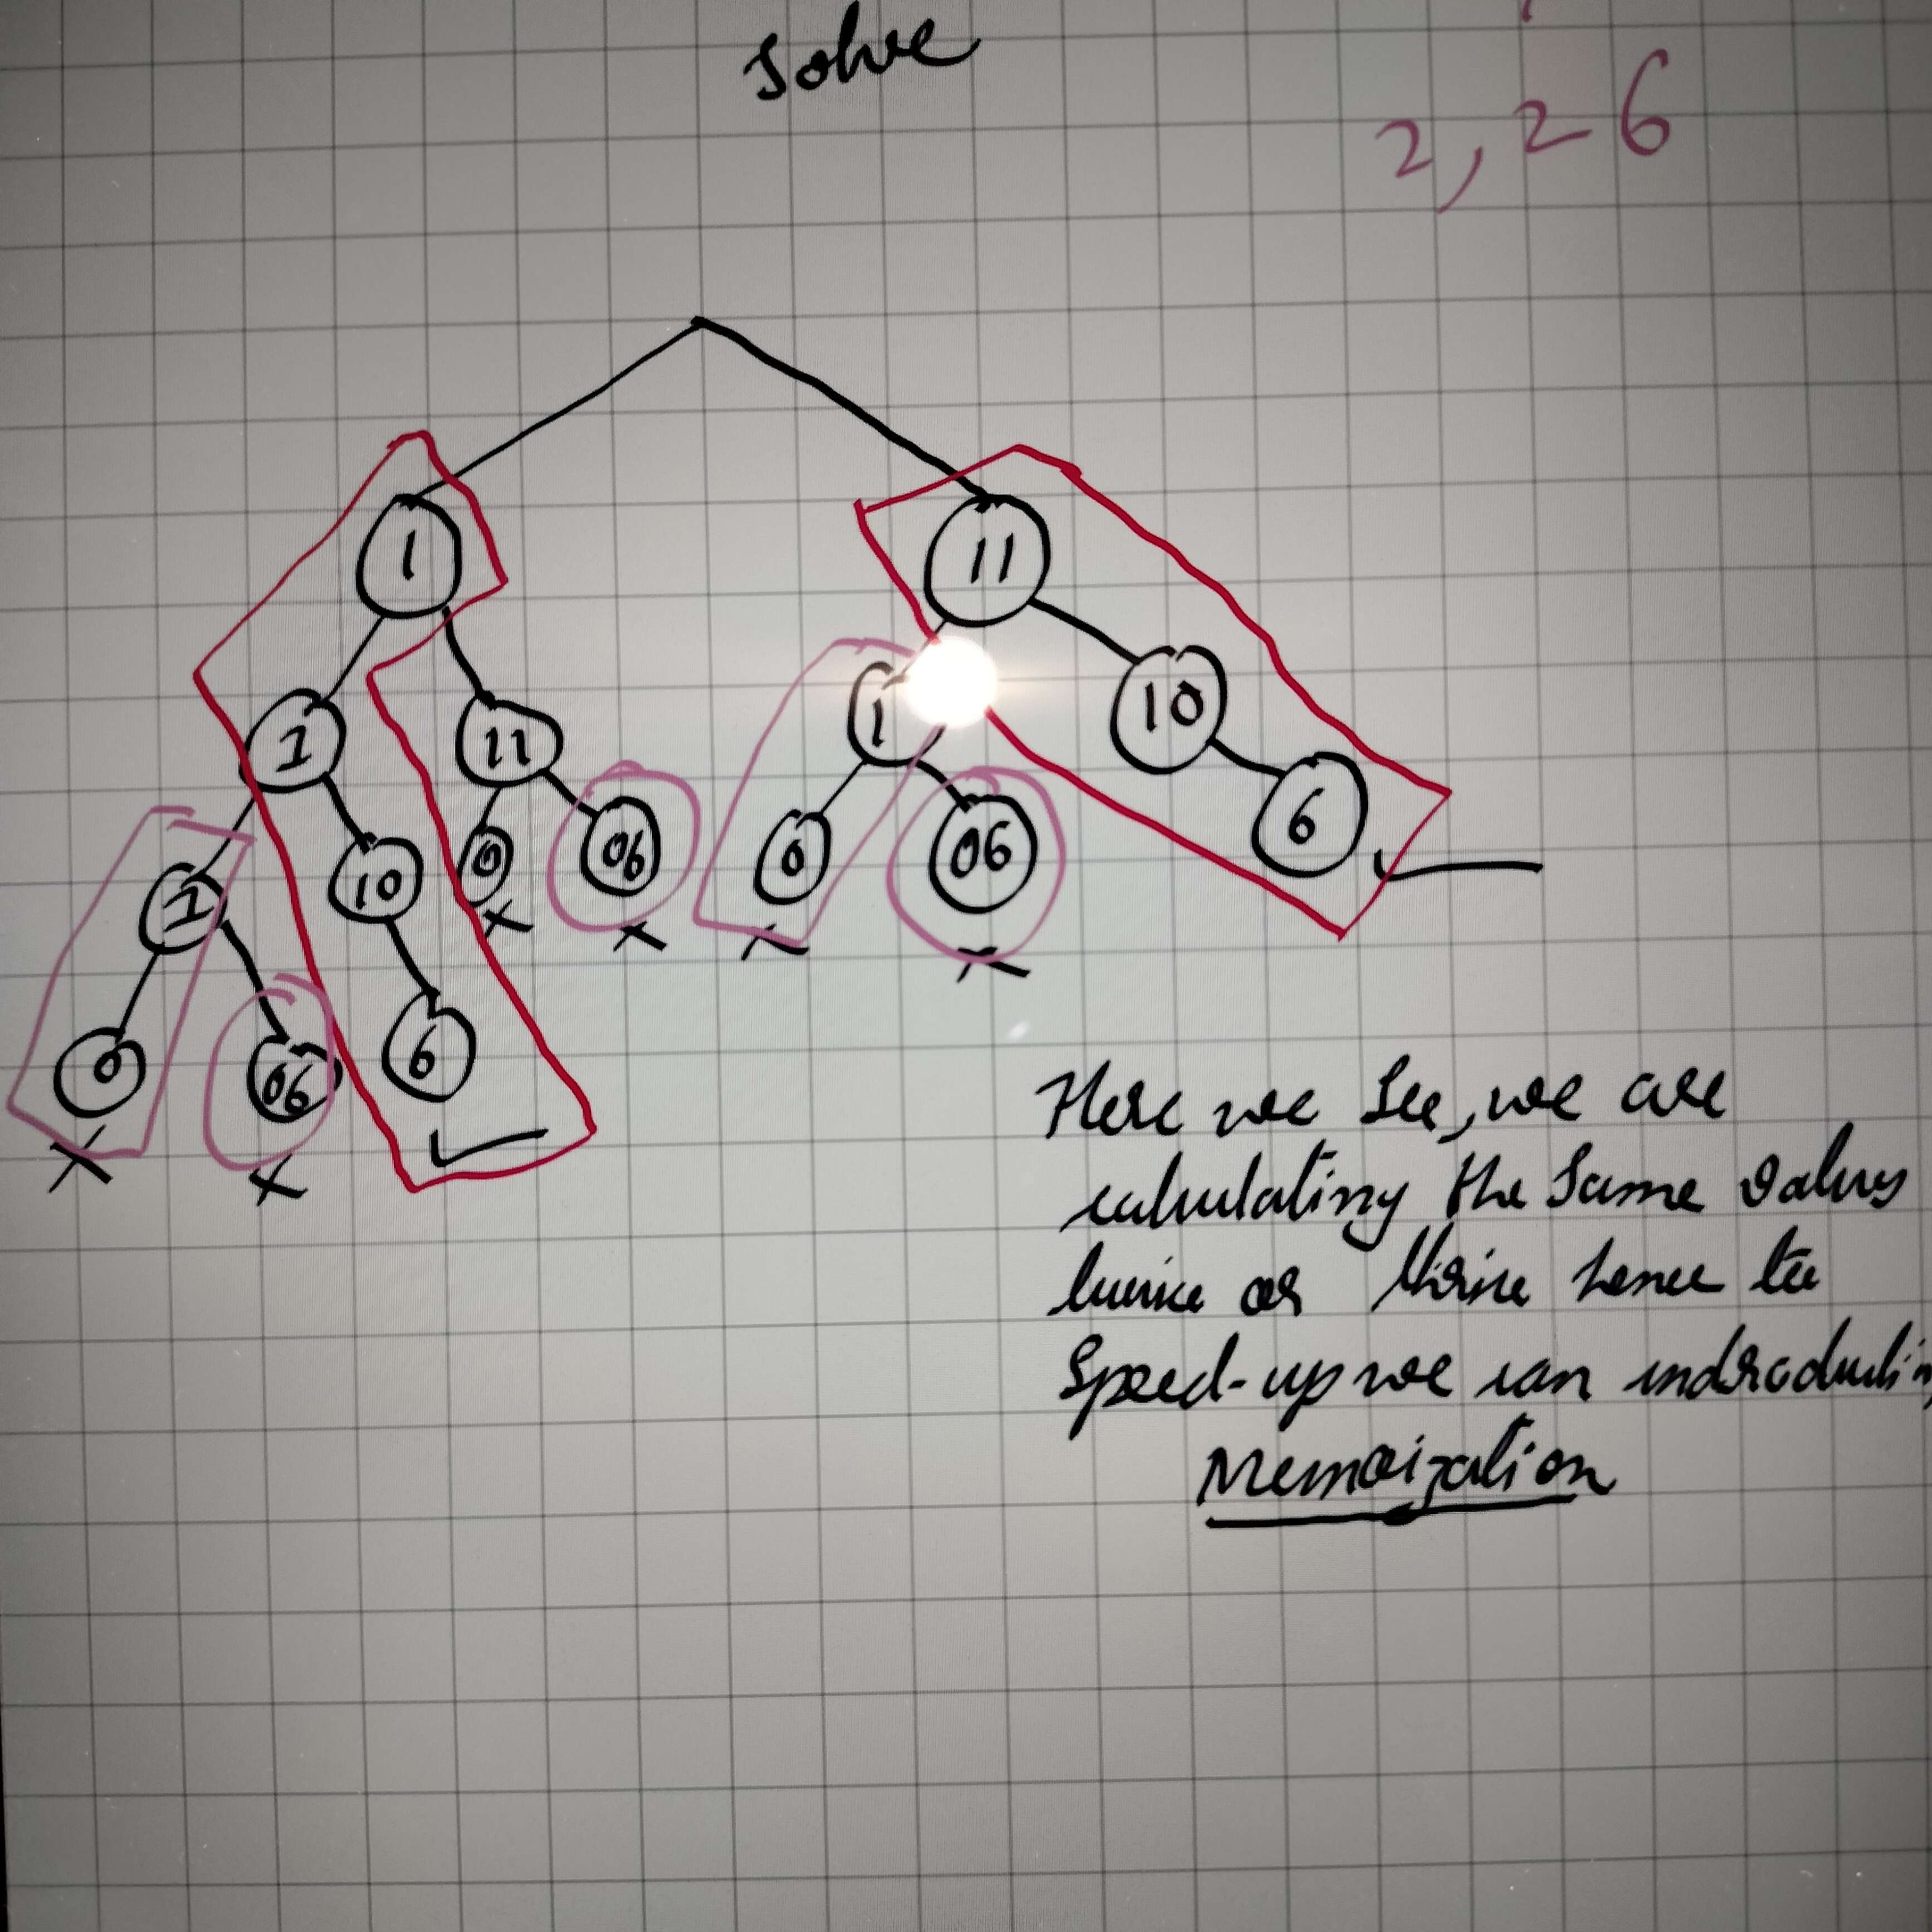 Solve
2, 26
1 11
1 11 1 10
1 10 0 06 0 06 6
0 06 6
Here we See, we are
calculating the Same values
twice or thrise hence to
Speed-up we can
Memoization